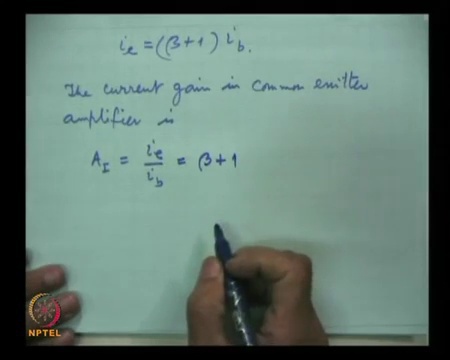 i_e = (β+1) i_b.
The current gain in common emitter
amplifier is
A_I = i_e/i_b = β+1
NPTEL